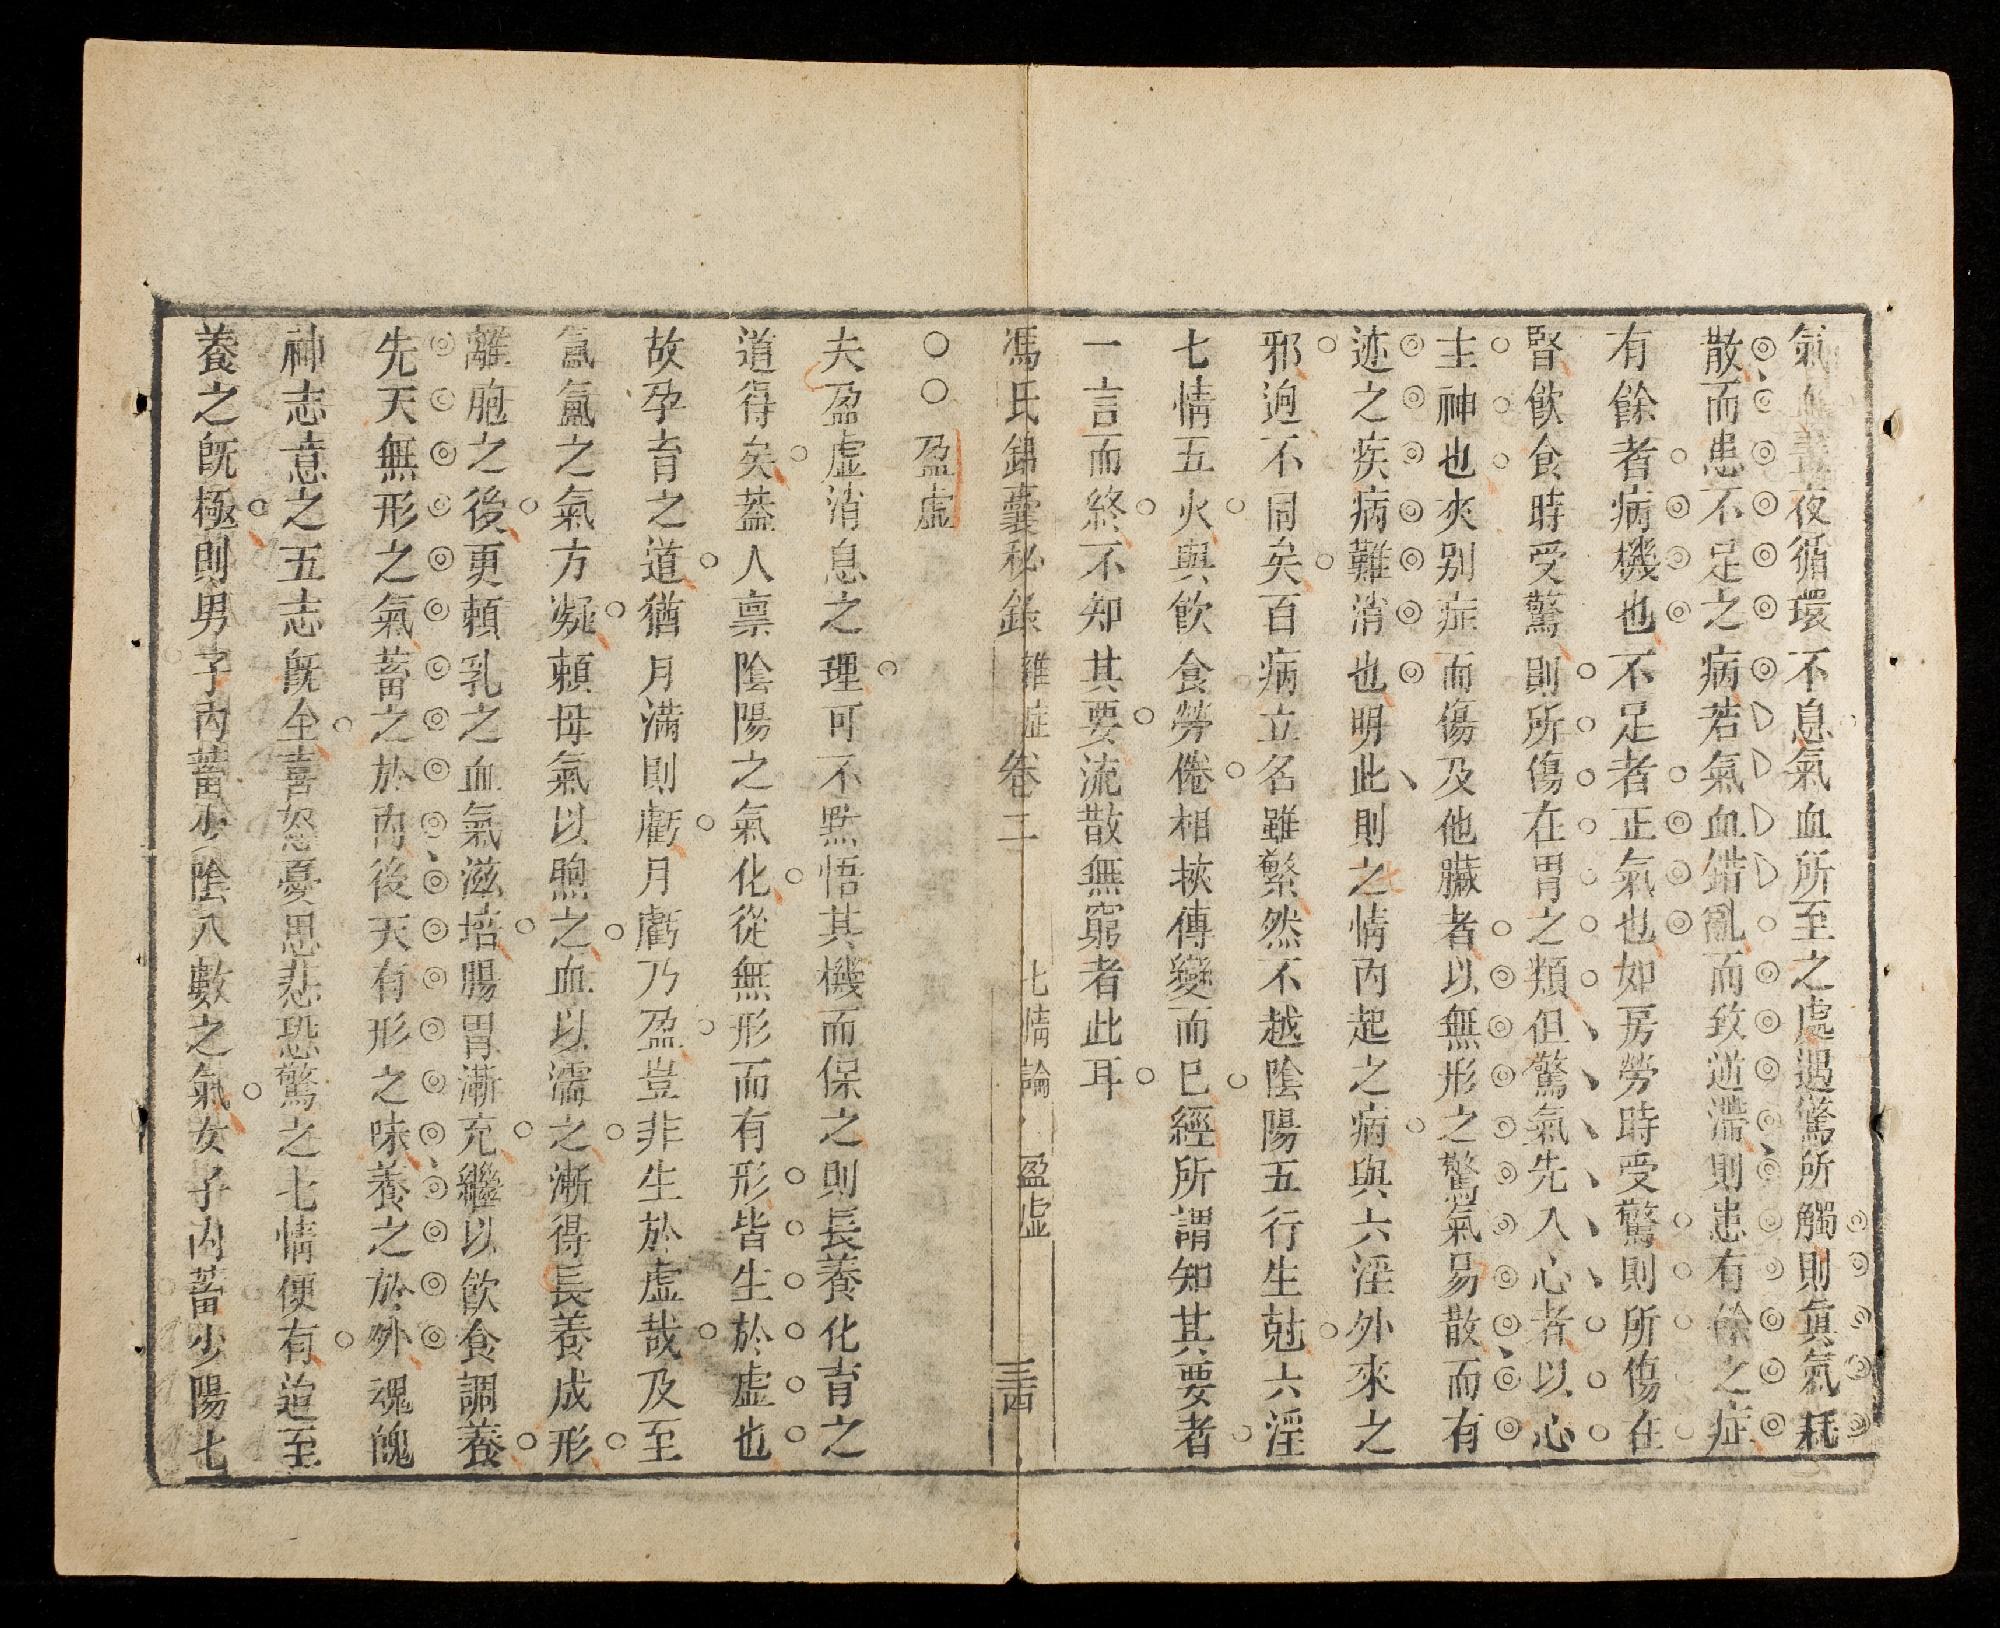 氣血晝夜循環不息氣血所至之處遇驚所觸則眞氣耗
散而患不足之病若氣血錯亂而致逆滯則患有餘之症
有餘者病機也不足者正氣也如房勞時受驚則所傷在
腎飲食時受驚則所傷在胃之類但驚氣先入心者以心
主神也夾別症而傷及他臟者以無形之驚氣易散而有
迹之疾病難消也明此則之情內起之病與六淫外來之
邪迥不同矣百病立名雖繁然不越陰陽五行生尅六淫
七情五火與飲食勞倦相挾傳變而已經所謂知其要者
一言而終不知其要流散無窮者此耳
馮氏錦囊秘錄 雜症卷二 七情論 盈虛 三十四
○○盈虛
夫盈虛消息之理可不黙悟其機而保之則長養化育之
道得矣葢人禀陰陽之氣化從無形而有形皆生於虛也
故孕育之道猶月滿則虧月虧乃盈豈非生於虛哉及至
氤氳之氣方凝賴母氣以煦之血以濡之漸得長養成形
離胞之後更賴乳之血氣滋培腸胃漸充繼以飲食調養
先天無形之氣蓄之於內後天有形之味養之於外魂魄
神志意之五志旣全喜怒憂思悲恐驚之七情便有迨至
養之旣極則男子內蓄少陰八數之氣女子內蓄少陽七